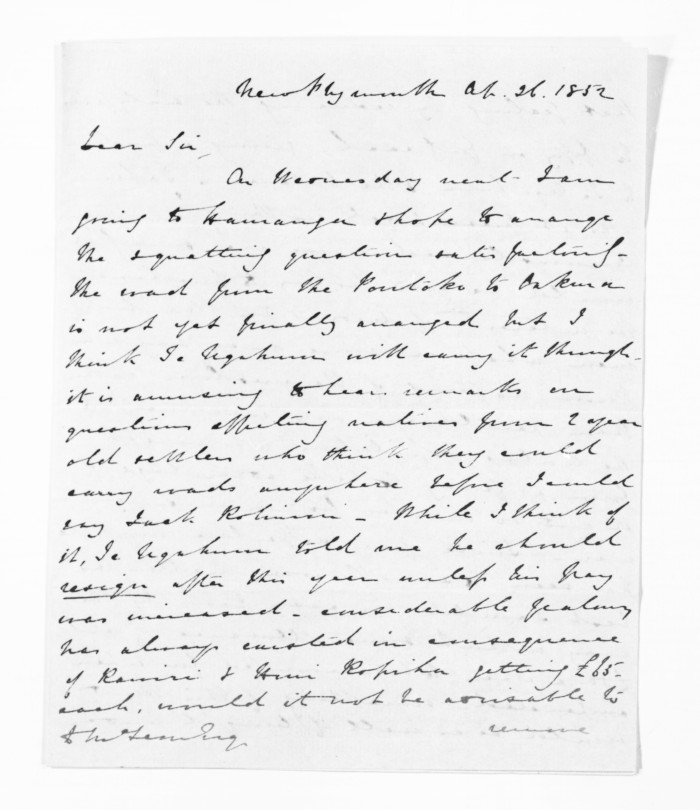 New Plymouth Ap. 26. 1852
Dear Sir,
On Wednesday next I am
going to & hope to arrange
the squatting question satisfactorily -
the road from the Poutoko to Oakura
is not yet finally arranged but I
think Te Ngahuru will carry it through -
it is amusing to hear remarks on
questions affecting natives from 2 year
old settlers who think they could
carry roads anywhere before I could
say Jack Robinson - While I think of
it, Te Ngahuru told me he should
resign after this year unless his pay
was increased - considerable jealousy
has always existed in consequence
of & Honi Ropiha getting £65 -
each, would it not be advisable to
remove
D McLean Esq